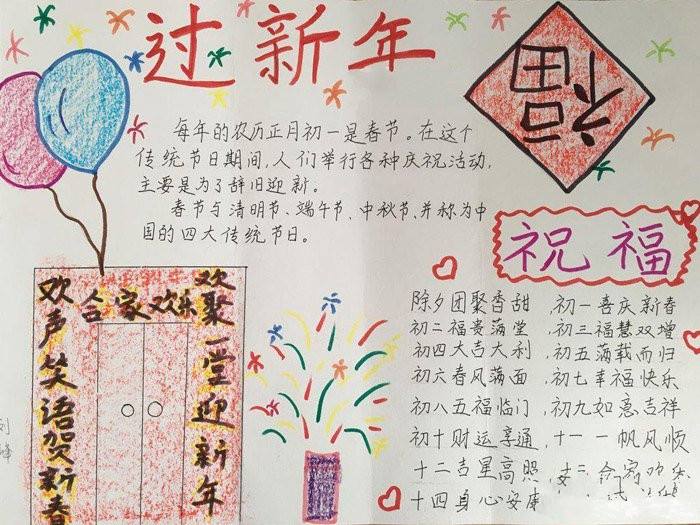 过新年
福
每年的农历正月初一是春节。在这个
传统节日期间,人们举行各种庆祝活动,
主要是为了辞旧迎新。
春节与清明节、端午节、中秋节、并称为中
国的四大传统节日。
合家欢乐
欢声笑语贺新春
欢聚一堂迎新年
祝福
除夕团聚香甜,初一喜庆新春
初二福贵满堂,初三福慧双增
初四大吉大利,初五满载而归
初六春风满面,初七幸福快乐
初八五福临门,初九如意吉祥
初十财运亨通,十一一帆风顺
十二吉星高照,合家欢乐
十四身心安康
刘